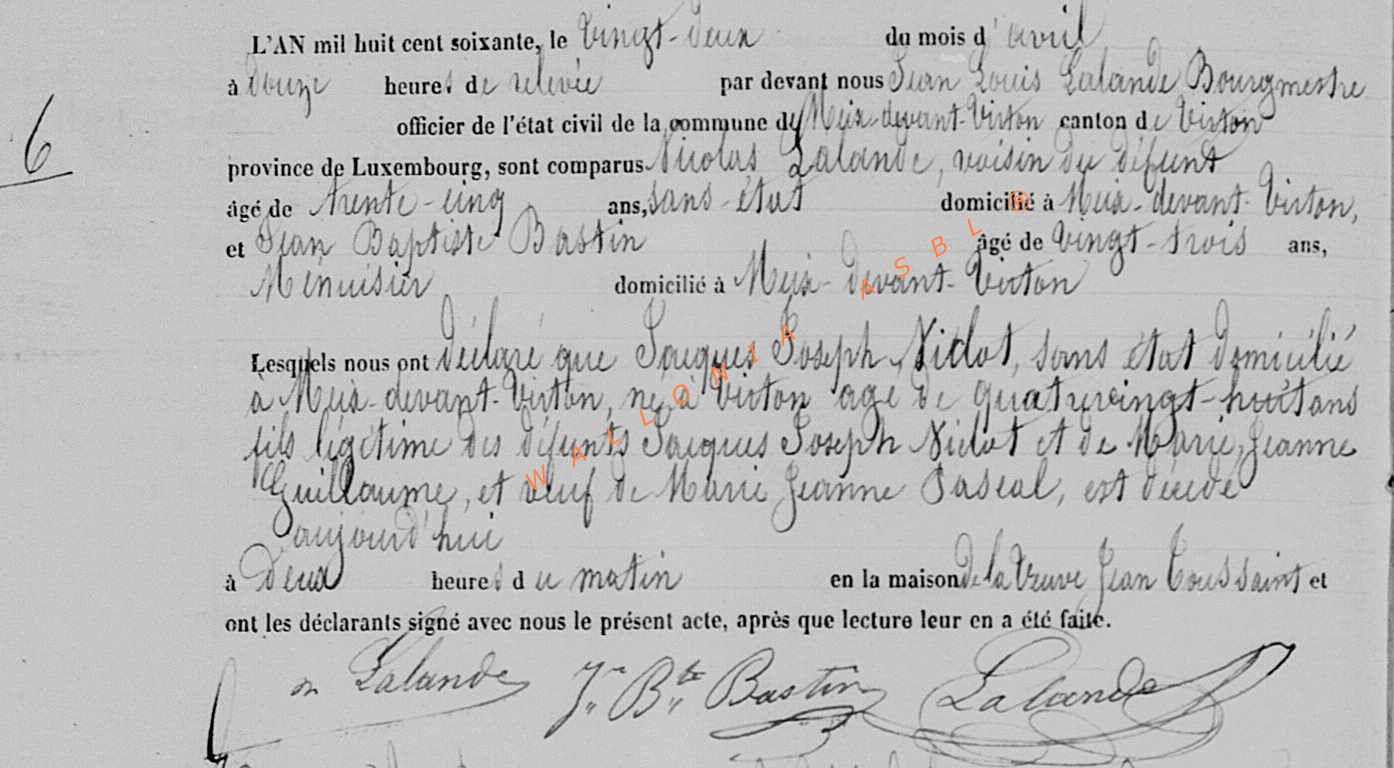 L'AN mil huit cent soixante, le vingt-deux du mois d'avril
à douze heures de relevée par devant nous Jean Louis Lalande Bourgmestre
6
officier de l'état civil de la commune de Meix-devant-Virton canton de Virton
province de Luxembourg, sont comparus Nicolas Lalande, voisin du défunt
âgé de trente-cinq ans, sans-état domicilié à Meix-devant-Virton,
et Jean Baptiste Bastin âgé de vingt-trois ans,
Menuisier domicilié à Meix-devant-Virton
Lesquels nous ont déclaré que Jacques Joseph Nidot, sans état domicilié
à Meix-devant-Virton, né à Virton âgé de quatrevingt-huit ans
fils légitime des défunts Jacques Joseph Nidot et de Marie Jeanne
Guillaume, et veuf de Marie Jeanne Pascal, est décédé
aujourd'hui
à deux heures du matin en la maison de la Veuve Jean Toussaint et
ont les déclarants signé avec nous le présent acte, après que lecture leur en a été faite.
Lalande Jn Bte Bastin Lalande
WALLONIA ASBL ®